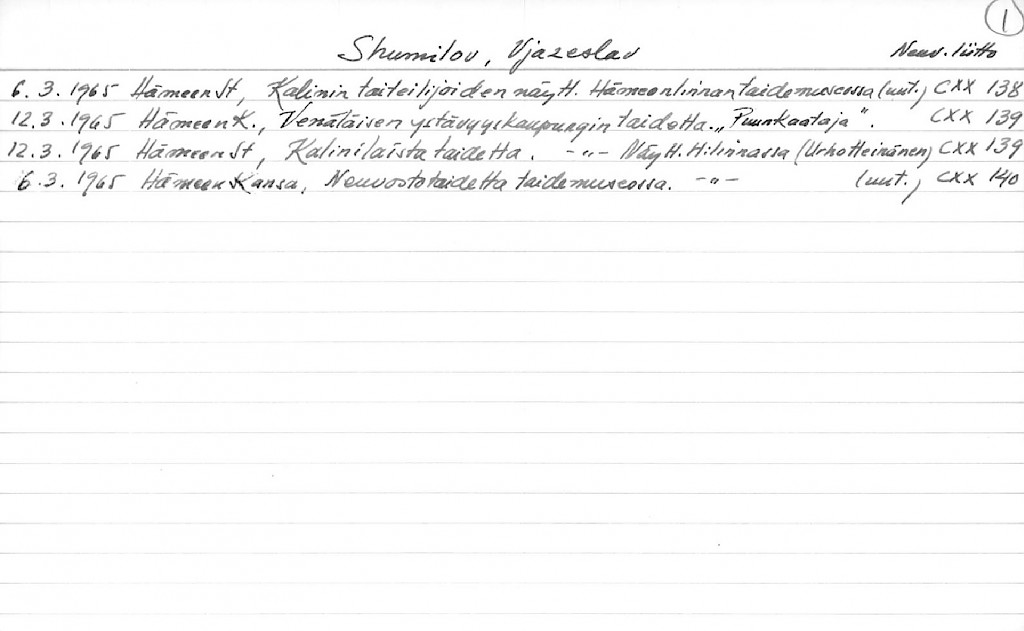 1
Shumilov, Vjazeslav Neuv. liitto
6.3.1965 Hämeen St, Kalinin taiteilijoiden näytt. Hämeenlinnan taidemuseossa (uut.) CXX 138
12.3.1965 Hämeen K., Venäläisen ystävyyskaupungin taidetta. "Puunkaataja". CXX 139
12.3.1965 Hämeen St, Kalinilaista taidetta. -"- Näytt. H:linnassa (Urho Heinänen) CXX 139
6.3.1965 Hämeen Kansa, Neuvostotaidetta taidemuseossa. -"- (uut.) CXX 140